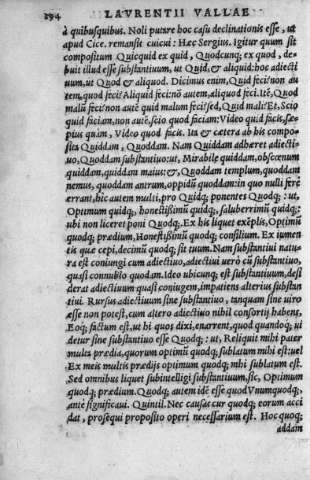 294 LAVRENTII VALLAE
à quibusquibus. Noli putare hoc casu declinationis esse, ut
apud Cice. remansit cuicui: Hæc Sergius. Igitur quum sit
compositum Quicquid ex quid, Quodcunq; ex quod, de-
buit illud esse substantiuum, ut Quid, & aliquid: hoc adiecti
uum, ut Quod & aliquod. Dicimus enim, Quid feci? non au
tem, quod feci? Aliquid feci nō autem, aliquod feci. Itē, Quod
malū feci? non autē quid malum feci? sed, Quid mali? Et, Scio
quid faciam, non autē, scio quod faciam: Video quid facis, sæ-
pius quàm, Video quod facis. Ita & cætera ab his compo-
sita Quiddam, Quoddam. Nam Quiddam adhæret adiecti-
uo, Quoddam substantiuo: ut, Mirabile quiddam, obscœnum
quiddam, quiddam maius: &, Quoddam templum, quoddam
nemus, quoddam antrum, oppidū quoddam: in quo nulli ferè
errant, hic autem multi, pro Quidq; ponentes Quodq; : ut,
Optimum quidq;, honestissimū quidq;, saluberrimū quidq; :
ubi non liceret poni Quodq;. Ex his liquet exēplis, Optimū
quodq; prædium, Honestissimū quodq; consilium. Ex iumen-
tis quæ cepi, decimū quodq; sit tuum. Nam substantiui natu-
ra est coniungi cum adiectiuo, adiectiui uerò cū substantiuo,
quasi connubio quodam. Ideo ubicunq; est substantiuum, desi
derat adiectiuum quasi coniugem, impatiens alterius substan
tiui. Rursus adiectiuum sine substantiuo, tanquam sine uiro
esse non potest, cum altero adiectiuo nihil consortij habens,
Eoq; factum est, ut hi quos dixi, errarent, quod quandoq; ui
detur sine substantiuo esse Quodq; : ut, Reliquit mihi pater
multa prædia, quorum optimū quodq; sublatum mihi est: uel
Ex meis multis prædijs optimum quodq; mihi sublatum est.
Sed omnibus liquet subintelligi substantiuum, sic, Optimum
quodq; prædium. Quodq; autem idē esse quod Vnumquodq;,
antè significaui. Quintil. Nec causæ cur quodq; eorum acci
dat, prosequi proposito operi necessarium est. Hoc quoq;
addam